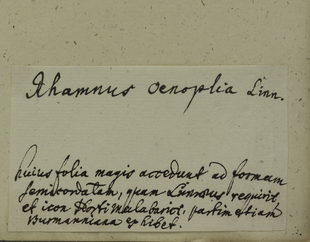 Rhamnus oenoplia Linn.
huius folia magis accedunt ad formam
semicordatam, quam Linnaeus requirit,
et icon Horti Malabarici, partim etiam
Burmanniana exhibet.